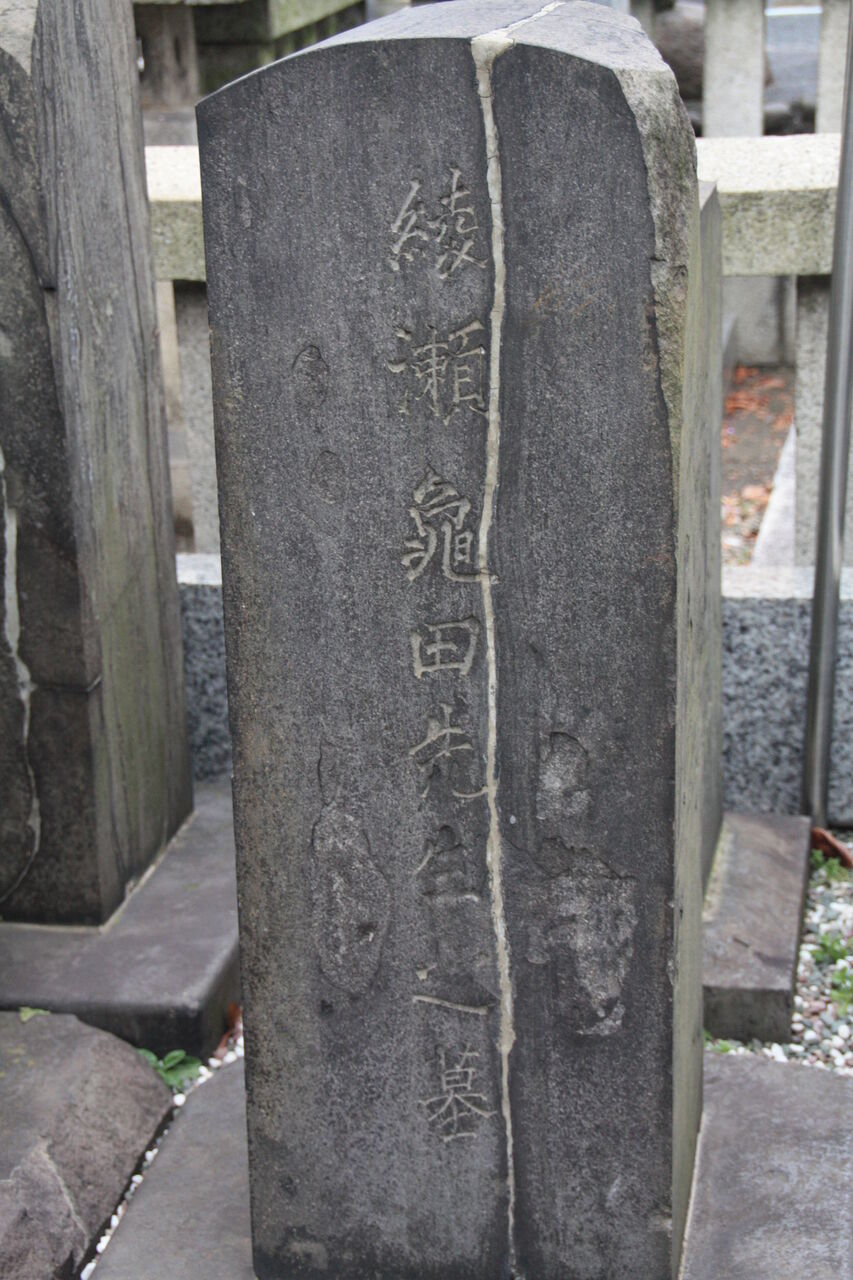 綾瀬龜田先生之墓